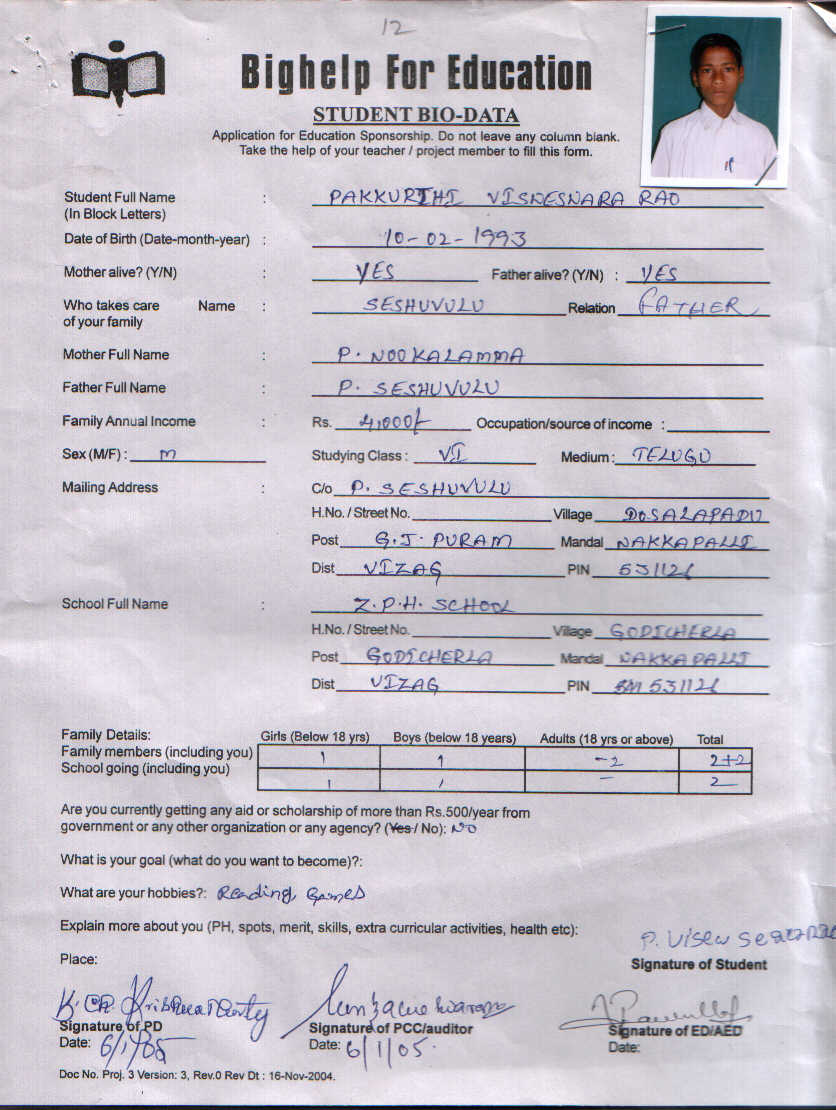 12
Bighelp For Education
STUDENT BIO-DATA
Application for Education Sponsorship. Do not leave any column blank.
Take the help of your teacher / project member to fill this form.
Student Full Name : PAKKURTHI VISWESWARA RAO
(In Block Letters)
Date of Birth (Date-month-year) : 10-02-1993
Mother alive? (Y/N) : YES Father alive? (Y/N) : YES
Who takes care Name : SESHUVULU Relation FATHER
of your family
Mother Full Name : P. NOOKALAMMA
Father Full Name : P. SESHUVULU
Family Annual Income : Rs. 4,000/- Occupation/source of income :
Sex (M/F) : M Studying Class : VI Medium : TELUGU
Mailing Address : C/o P. SESHUVULU
H.No. / Street No. Village DOSALAPADU
Post G.J. PURAM Mandal NAKKAPALLI
Dist VIZAG PIN 531126
School Full Name : Z.P.H. SCHOOL
H.No. / Street No. Village GODICHERLA
Post GODICHERLA Mandal NAKKAPALLI
Dist VIZAG PIN 531126
Family Details: Girls (Below 18 yrs) Boys (below 18 years) Adults (18 yrs or above) Total
Family members (including you) 1 1 -2 2+2
School going (including you) 1 1 - 2
Are you currently getting any aid or scholarship of more than Rs.500/year from
government or any other organization or any agency? (Yes / No): NO
What is your goal (what do you want to become)?:
What are your hobbies?: Reading, Games
Explain more about you (PH, spots, merit, skills, extra curricular activities, health etc):
Place:
Signature of Student
Signature of PD Signature of PCC/auditor Signature of ED/AED
Date: 6/1/05 Date: 6/1/05. Date:
Doc No. Proj. 3 Version: 3, Rev.0 Rev Dt : 16-Nov-2004.